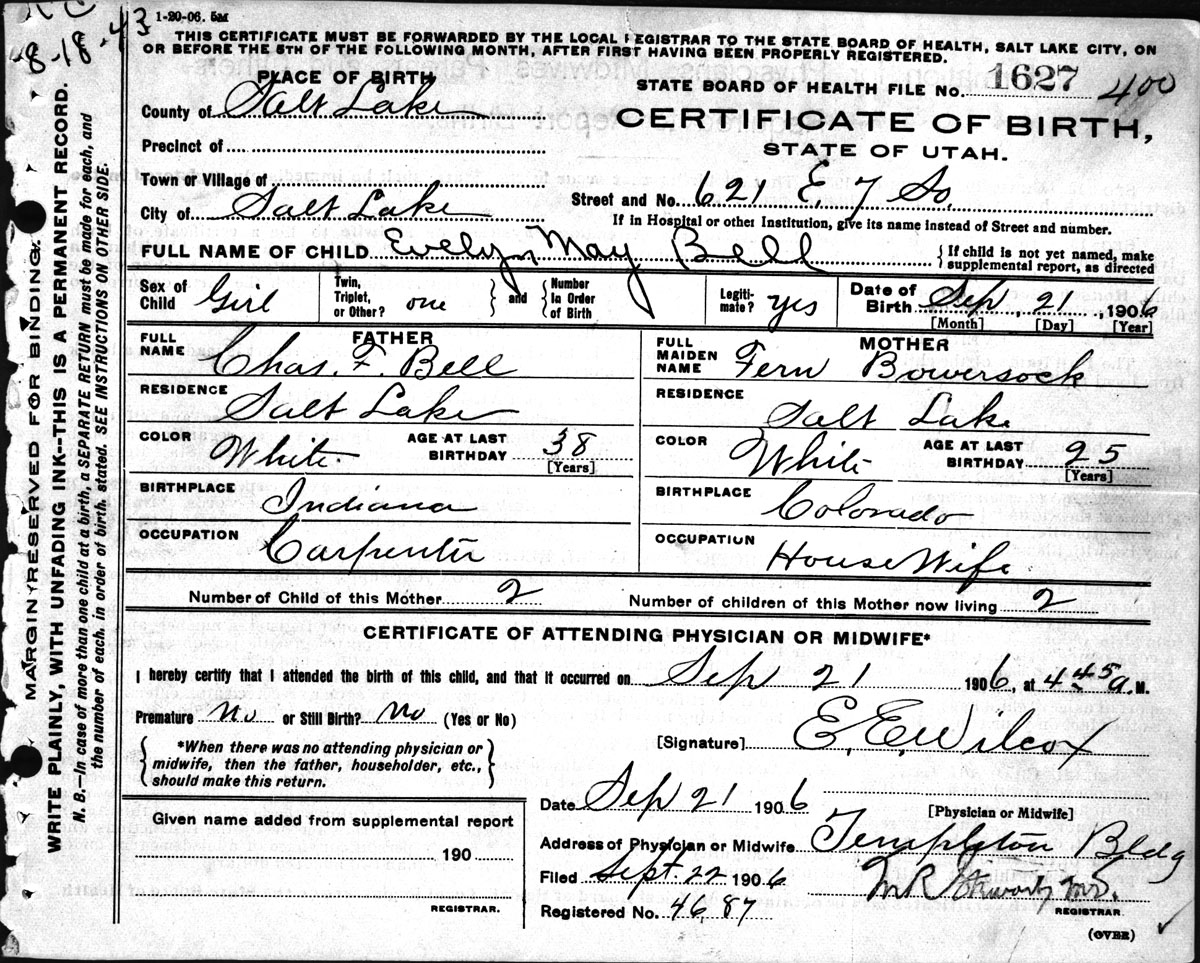 1-20-06. 5M
8-18-43
THIS CERTIFICATE MUST BE FORWARDED BY THE LOCAL REGISTRAR TO THE STATE BOARD OF HEALTH, SALT LAKE CITY, ON
OR BEFORE THE 5TH OF THE FOLLOWING MONTH, AFTER FIRST HAVING BEEN PROPERLY REGISTERED.
PLACE OF BIRTH
STATE BOARD OF HEALTH FILE No. 1627 400
County of Salt Lake
CERTIFICATE OF BIRTH,
STATE OF UTAH.
Precinct of
Town or Village of
Street and No. 621 E. 7 So.
City of Salt Lake
If in Hospital or other Institution, give its name instead of Street and number.
FULL NAME OF CHILD Evelyn May Bell { If child is not yet named, make
supplemental report, as directed
Sex of Child Girl
Twin, Triplet, or Other? one } and { Number In Order of Birth
Legiti-mate? yes
Date of Birth Sep, 21, 1906
[Month] [Day] [Year]
FATHER
FULL NAME Chas. F. Bell
RESIDENCE Salt Lake
COLOR White. AGE AT LAST BIRTHDAY 38
[Years]
BIRTHPLACE Indiana
OCCUPATION Carpenter
MOTHER
FULL MAIDEN NAME Fern Bowersock
RESIDENCE Salt Lake
COLOR White AGE AT LAST BIRTHDAY 25
[Years]
BIRTHPLACE Colorado
OCCUPATION House Wife
Number of Child of this Mother 2 Number of children of this Mother now living 2
CERTIFICATE OF ATTENDING PHYSICIAN OR MIDWIFE*
I hereby certify that I attended the birth of this child, and that it occurred on Sep 21 1906, at 4 45 a. M.
Premature No or Still Birth? No (Yes or No)
{ *When there was no attending physician or
midwife, then the father, householder, etc.,
should make this return. }
[Signature] E. E. Wilcox
Date Sep 21 1906
[Physician or Midwife]
Address of Physician or Midwife Templeton Bldg
Filed Sept. 22 1906
REGISTRAR.
Registered No. 46,87
(OVER)
Given name added from supplemental report
190
REGISTRAR.
MARGIN RESERVED FOR BINDING.
WRITE PLAINLY, WITH UNFADING INK--THIS IS A PERMANENT RECORD.
N. B.—In case of more than one child at a birth, a SEPARATE RETURN must be made for each, and
the number of each, in order of birth, stated. SEE INSTRUCTIONS ON OTHER SIDE.